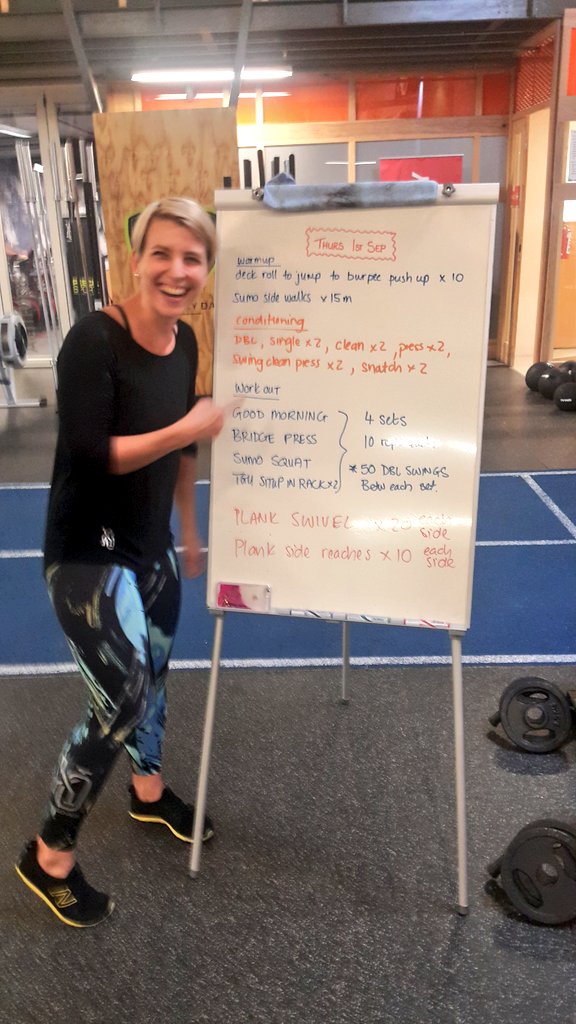 THURS 1ST SEP
warmup
deck roll to jump to burpee push up x 10
Sumo side walks x 15m
conditioning
DBL, single x2, clean x2, press x2,
swing clean press x2, snatch x2
Work out
GOOD MORNING
BRIDGE PRESS
SUMO SQUAT
TGU SITUP IN RACK x2
4 sets
10
* 50 DBL SWINGS
Between each set.
PLANK SWIVEL x 20 each side
Plank side reaches x 10 each side